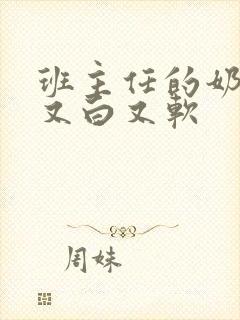 班主任的奶
又白又软
周妹